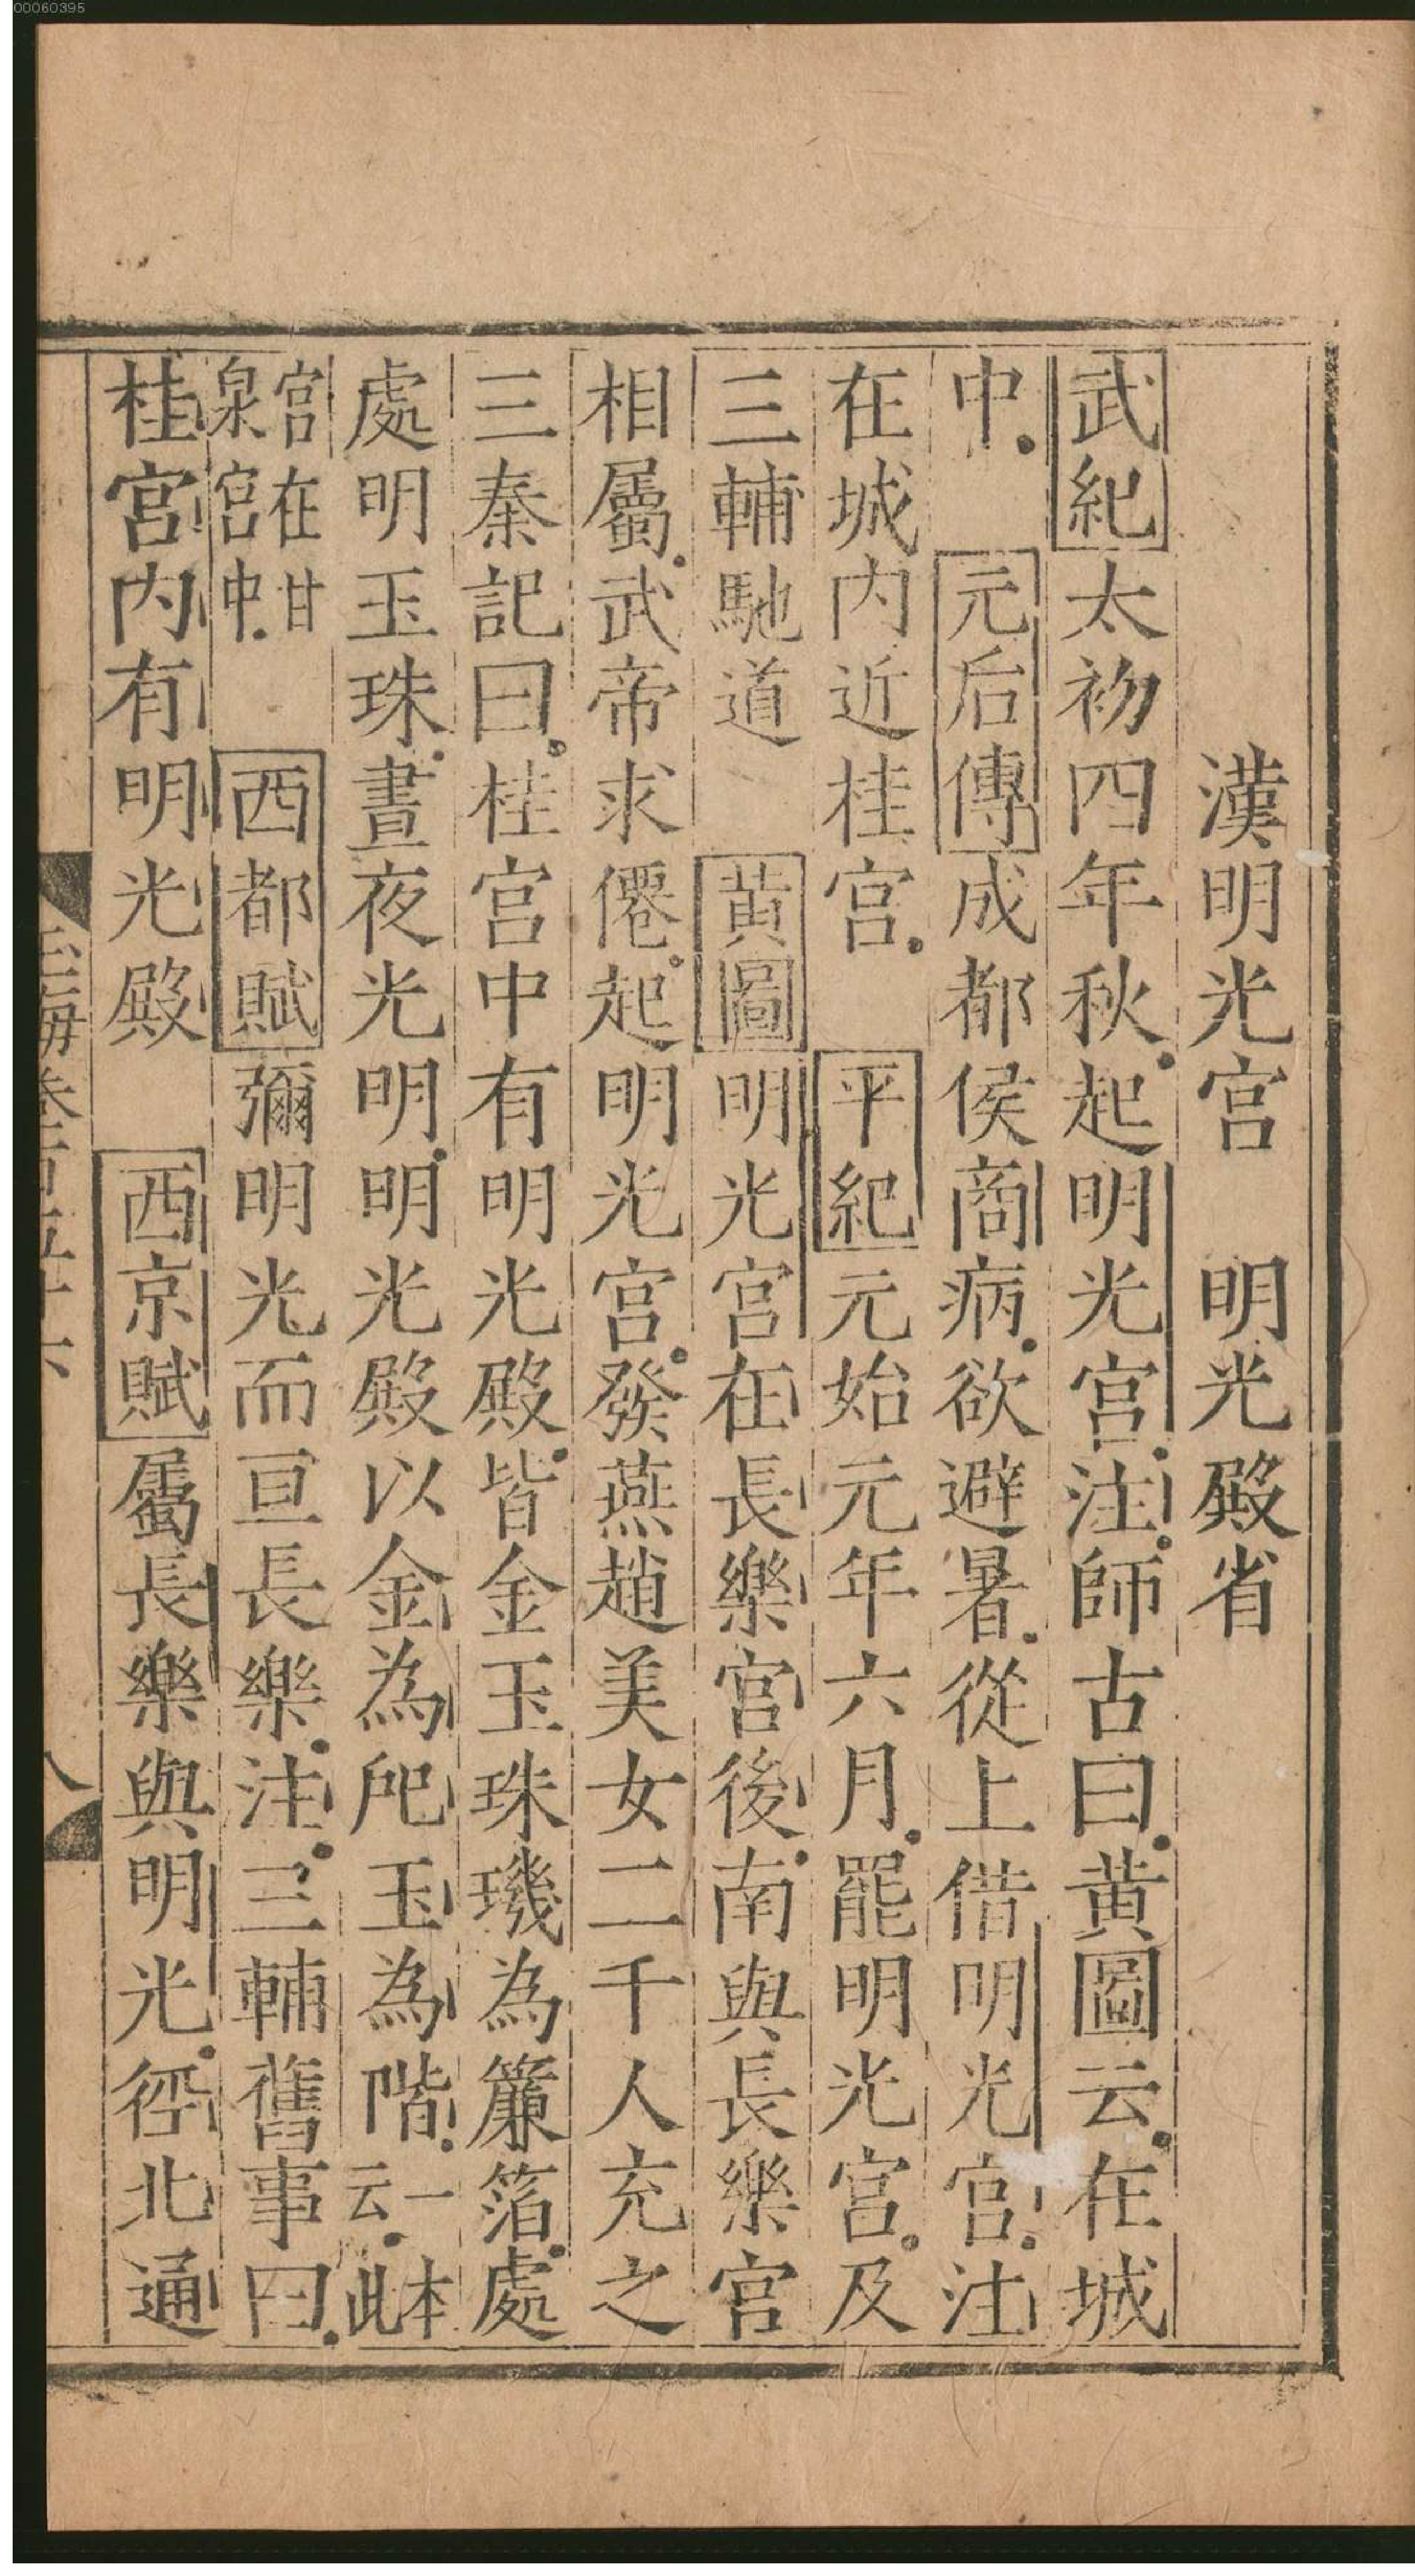 00060395
漢明光宮　明光殿省
武紀太初四年秋起明光宮注師古曰黃圖云在城
中　元后傳成都侯商病欲避暑從上借明光宮注
在城内近桂宮　平紀元始元年六月罷明光宮及
三輔馳道　黃圖明光宮在長樂宮後南與長樂宮
相屬武帝求僊起明光宮發燕趙美女二千人充之
三秦記曰桂宮中有明光殿皆金玉珠璣為簾箔處
處明玉珠晝夜光明明光殿以金為戺玉為階一本云此
宮在甘泉宮中　西都賦彌明光而亘長樂注三輔舊事曰
桂宮内有明光殿　西京賦屬長樂與明光徑北通
玉海卷百五十六
八